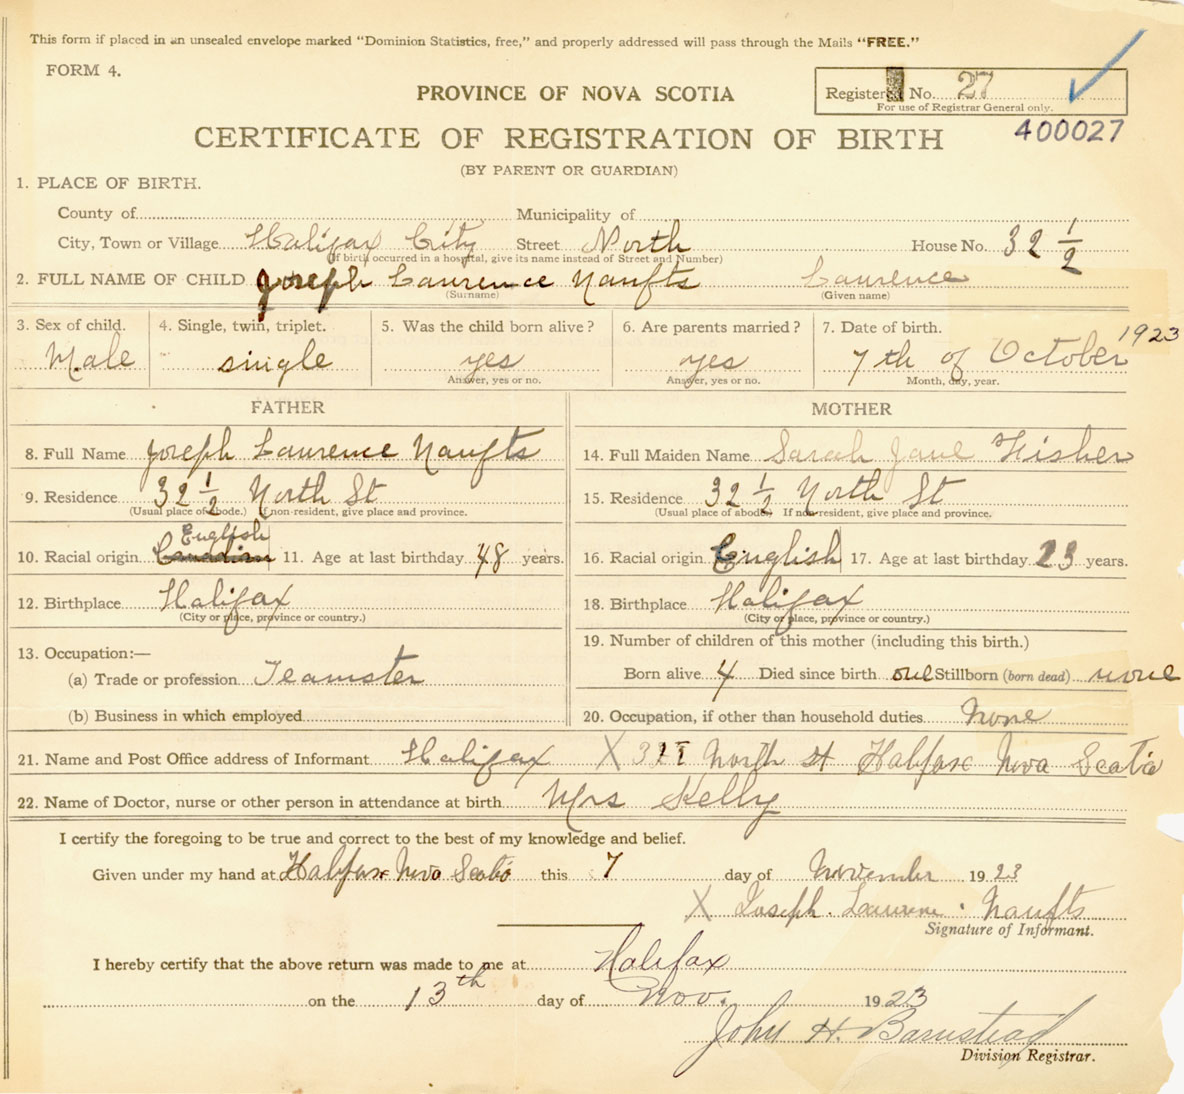 This form if placed in an unsealed envelope marked "Dominion Statistics, free," and properly addressed will pass through the Mails "FREE."
FORM 4.
Registered No. 27
For use of Registrar General only.
PROVINCE OF NOVA SCOTIA
400027
CERTIFICATE OF REGISTRATION OF BIRTH
(BY PARENT OR GUARDIAN)
1. PLACE OF BIRTH.
County of Municipality of
City, Town or Village Halifax City Street North House No. 32 1/2
(If birth occurred in a hospital, give its name instead of Street and Number)
2. FULL NAME OF CHILD Joseph Laurence Naufts Laurence
(Surname) (Given name)
3. Sex of child. 4. Single, twin, triplet. 5. Was the child born alive? 6. Are parents married? 7. Date of birth.
Male single yes yes 7th of October 1923
Answer, yes or no. Answer, yes or no. Month, day, year.
FATHER MOTHER
8. Full Name Joseph Laurence Naufts
9. Residence 32 1/2 North St
(Usual place of abode.) If non-resident, give place and province.
English
10. Racial origin Canadian 11. Age at last birthday 48 years.
12. Birthplace Halifax
(City or place, province or country.)
13. Occupation:—
(a) Trade or profession Teamster
(b) Business in which employed
14. Full Maiden Name Sarah Jane Fisher
15. Residence 32 1/2 North St
(Usual place of abode) If non-resident, give place and province.
16. Racial origin English 17. Age at last birthday 23 years.
18. Birthplace Halifax
(City or place, province or country.)
19. Number of children of this mother (including this birth.)
Born alive 4 Died since birth one Stillborn (born dead) none
20. Occupation, if other than household duties None
21. Name and Post Office address of Informant Halifax X North st Halifax Nova Scotia
22. Name of Doctor, nurse or other person in attendance at birth Mrs Kelly
I certify the foregoing to be true and correct to the best of my knowledge and belief.
Given under my hand at Halifax Nova Scotia this 7 day of November 1923
X Joseph Laurence Naufts
Signature of Informant.
I hereby certify that the above return was made to me at Halifax
on the 13th day of Nov. 1923
John H. Barnstead
Division Registrar.